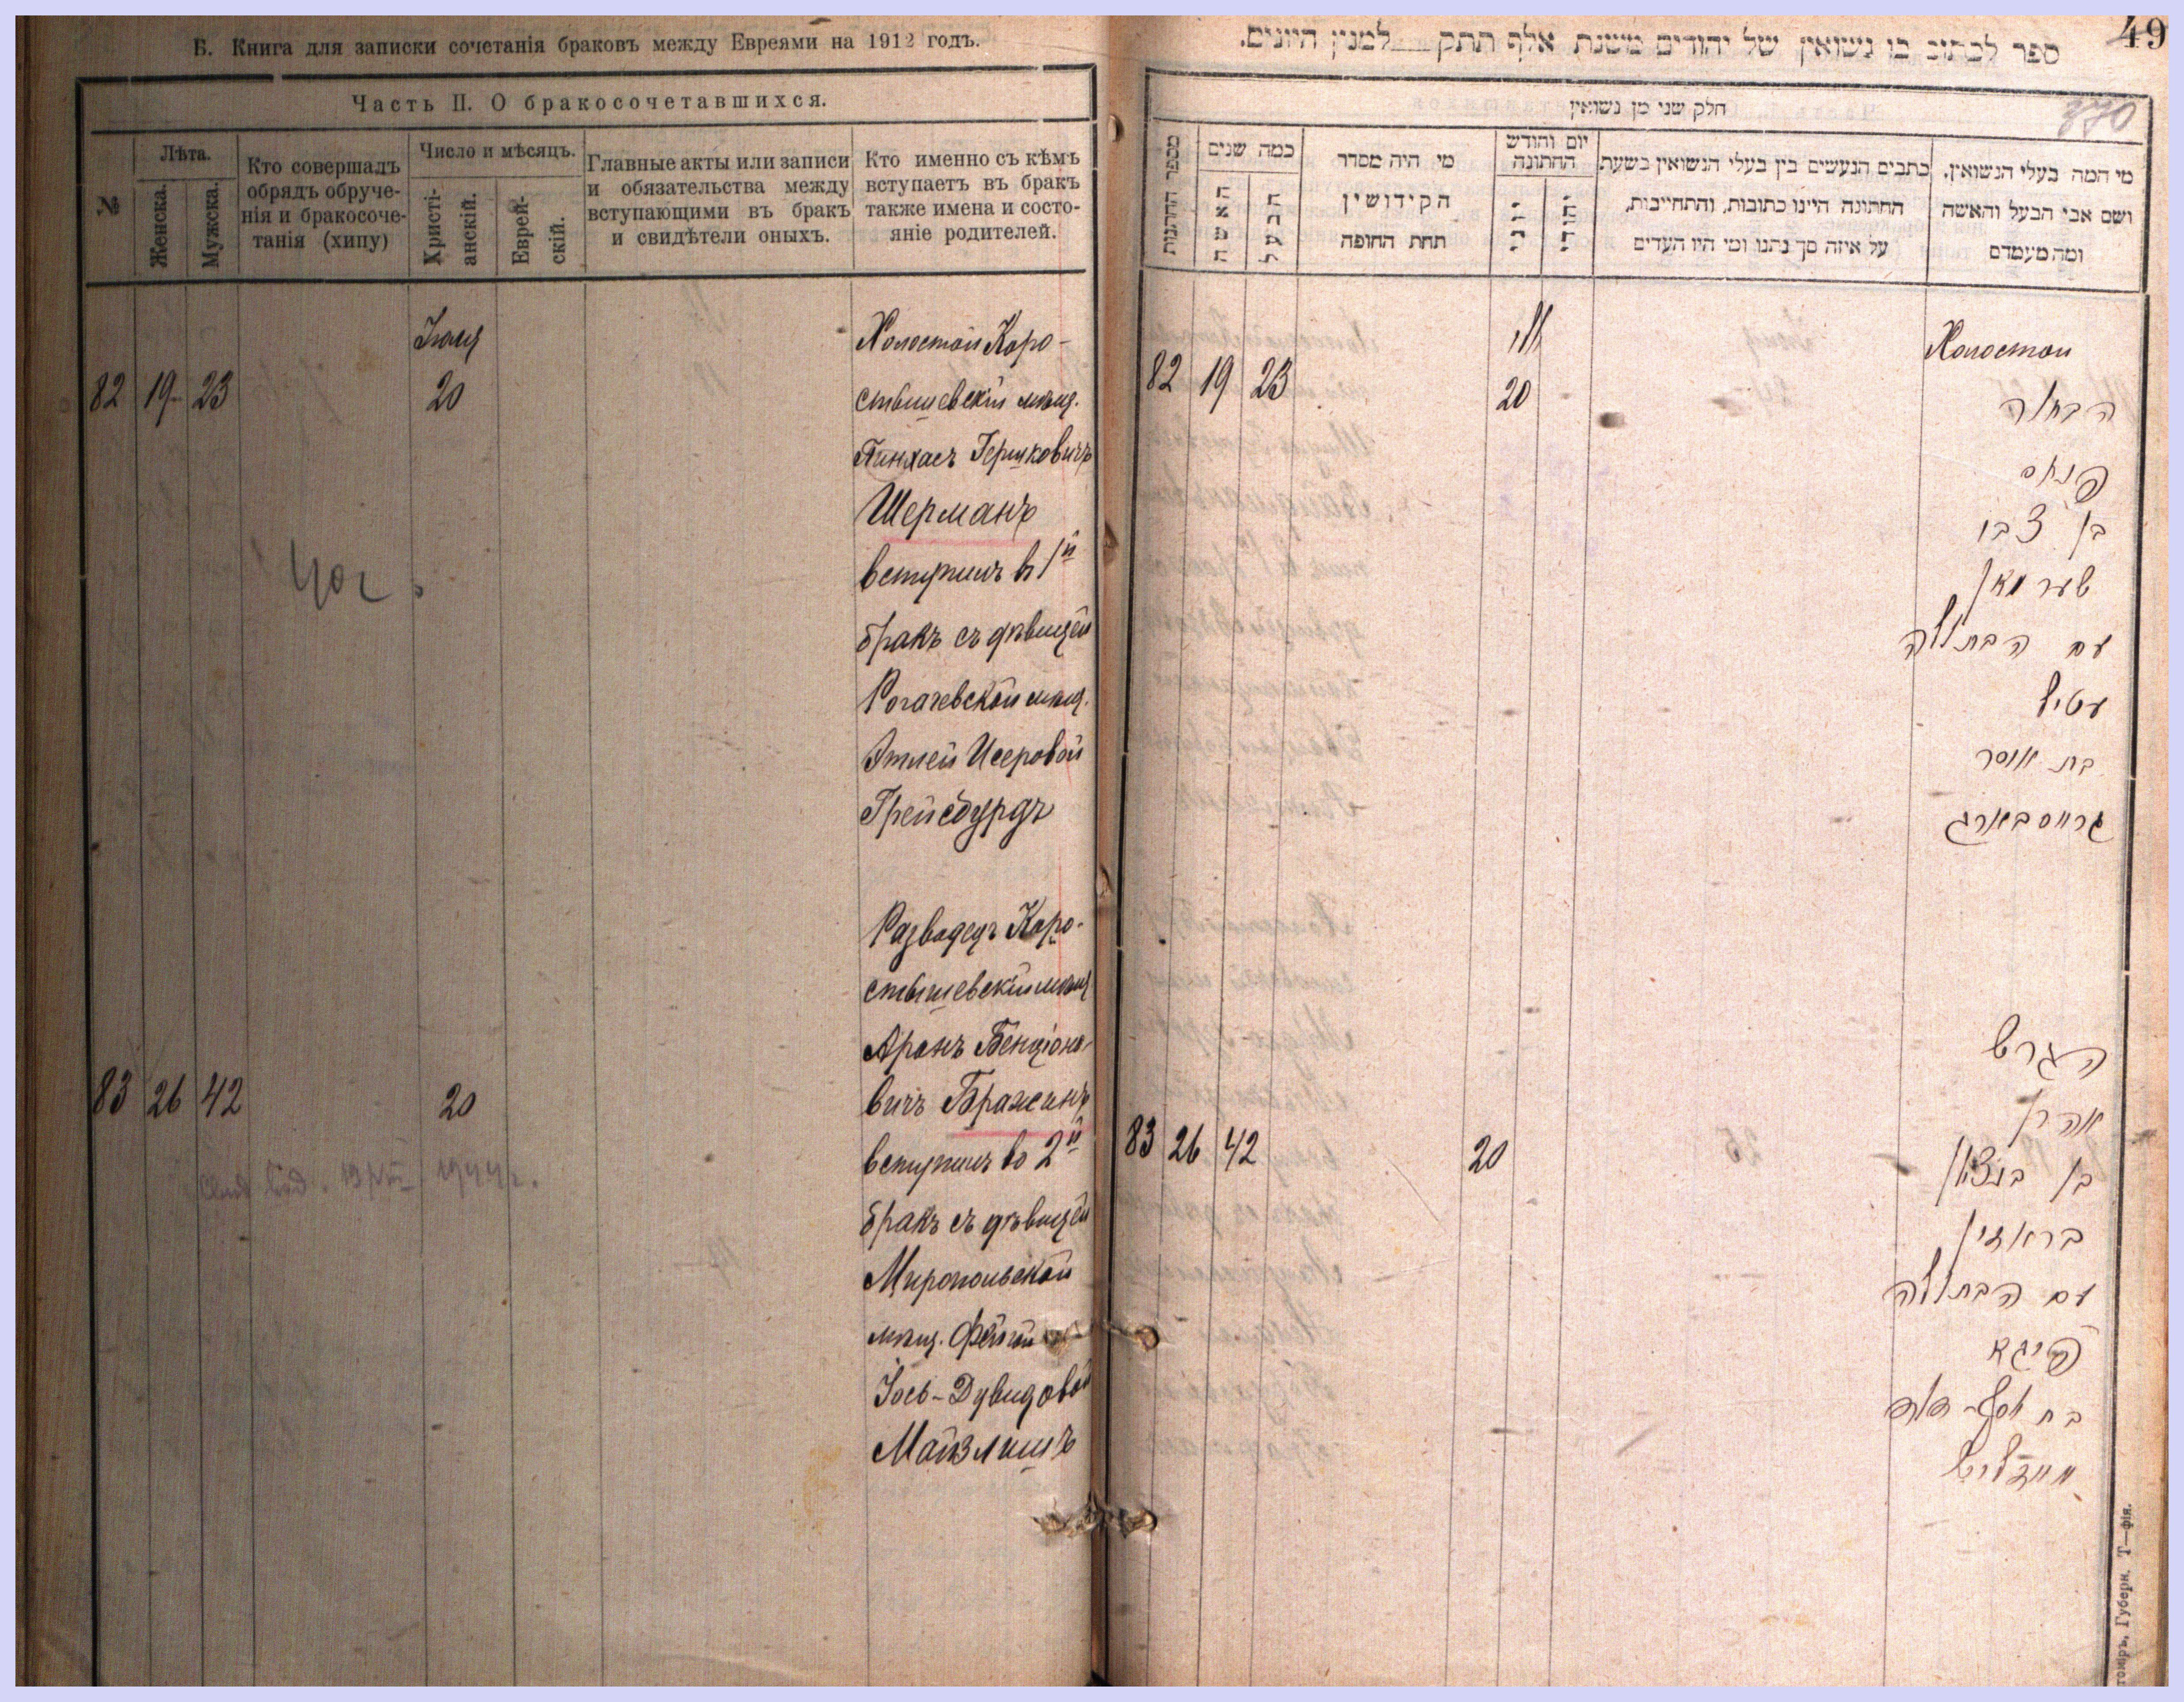 Б. Книга для записки сочетанія браковъ между Евреями на 1912 годъ.
Часть II. О бракосочетавшихся.
№
Лѣта.
Женска.
Мужска.
Кто совершалъ
обрядъ обруче-
нія и бракосоче-
танія (хипу)
Число и мѣсяцъ.
Христі-
анскій.
Еврей-
скій.
Главные акты или записи
и обязательства между
вступающими въ бракъ
и свидѣтели оныхъ.
Кто именно съ кѣмъ
вступаетъ въ бракъ
также имена и состо-
яніе родителей.
82 19 23
Іюня
20
Холостой Коро-
стышевскій мѣщ.
Пинхасъ Гершковичъ
Шерманъ
вступилъ въ 1й
бракъ съ дѣвицей
Рогачевской мѣщ.
Этлей Исеровой
Грейсбурдъ
83 26 42
20
Разводецъ Коро-
стышевскій мѣщ
Аронъ Бенціоно-
вичъ Бражанъ
вступилъ во 2й
бракъ съ дѣвицей
Миропольской
мѣщ. Фейгой
Іось-Дувидовой
Майзлишъ
49
370
ספר לכתוב בו נשואין של יהודים משנת אלף תתק למנין היונים.
חלק שני מן נשואין
מספר החתונות
כמה שנים
האשה
הבעל
מי היה מסדר
הקידושין
תחת החופה
יום וחודש
החתונה
יוני
יהודי
כתבים הנעשים בין בעלי הנשואין בשעת
החתונה היינו כתובות, והתחייבות,
על איזה סך נתנו ומי היו העדים
מי המה בעלי הנשואין,
ושם אבי הבעל והאשה
ומה מעמדם
82 19 23
20
Холостой
הבחור
פנחס
בן צבי
שערמאן
עם הבתולה
עטיל
בת איסר
83 26 42
20
הגרוש
אהרן
בן בנציון
בראזין
עם הבתולה
פייגא
מייזליש
Губерн. Т—фія.